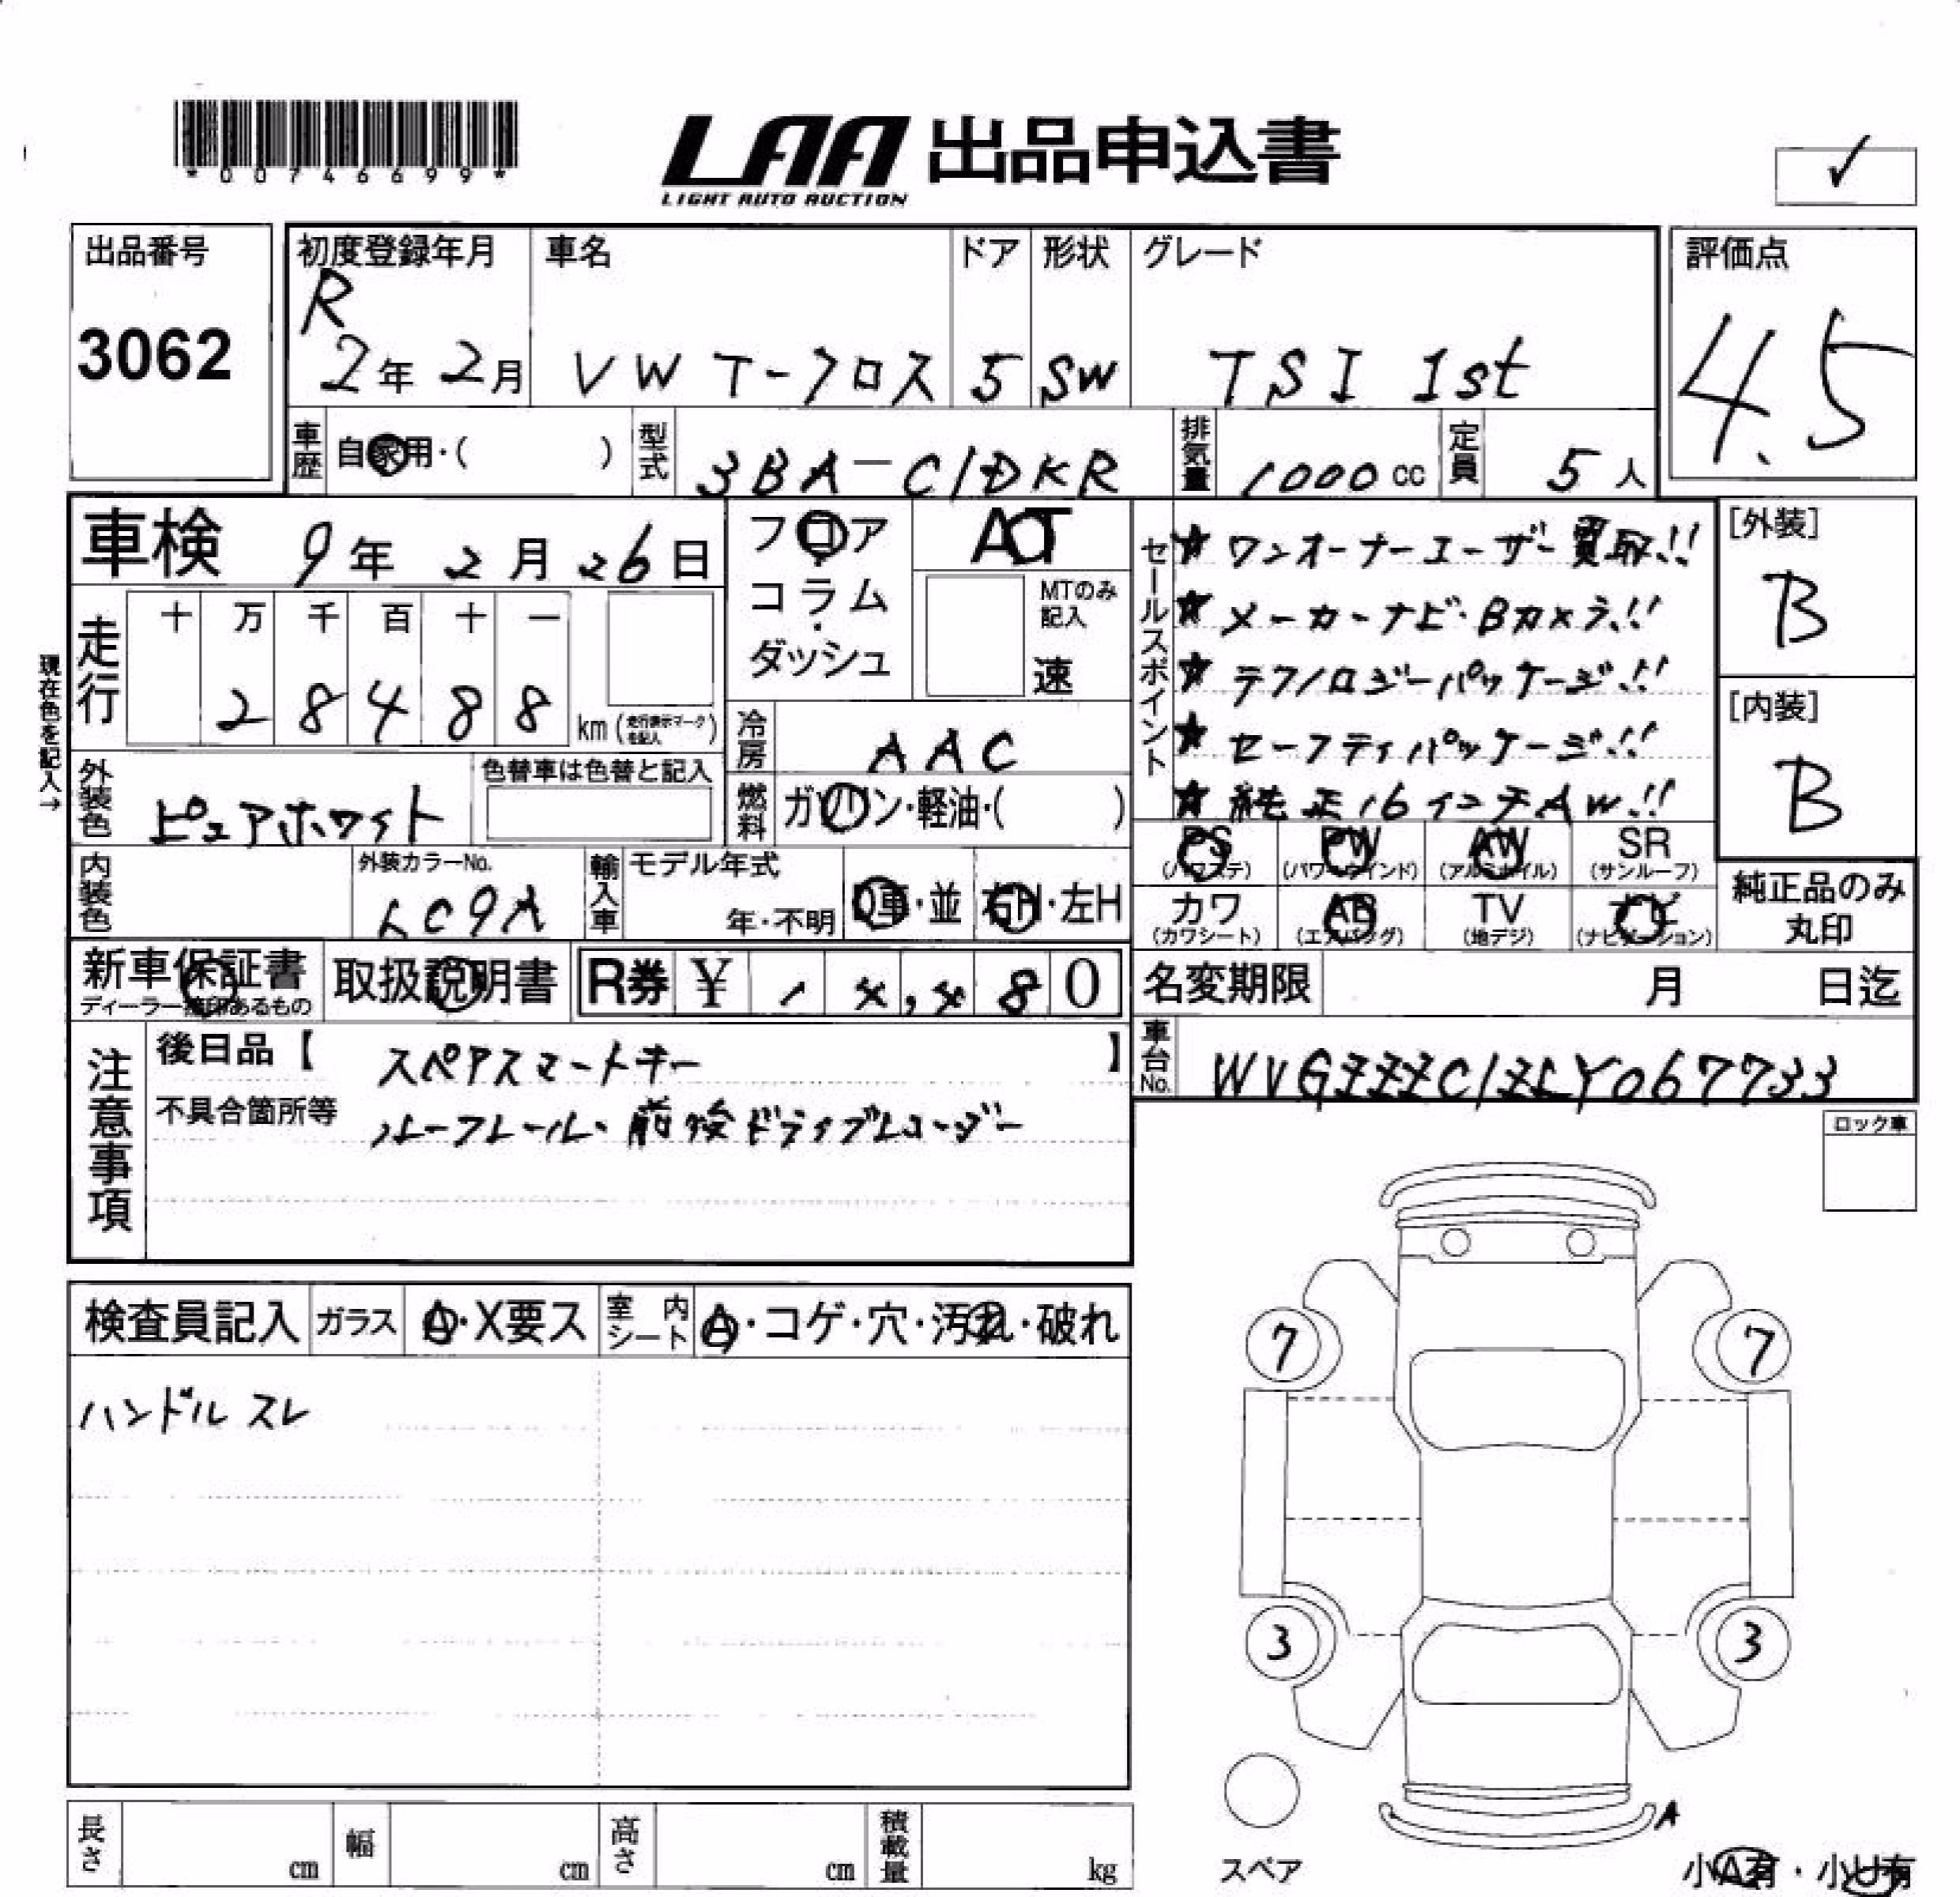 *00746699*
LAA 出品申込書
LIGHT AUTO AUCTION
✓
出品番号
3062
初度登録年月
R
2年 2月
車名
VW T-クロス
ドア
5
形状
SW
グレード
TSI 1st
評価点
4.5
車歴
自家用・( )
型式
3BA-C1DKR
排気量
1000 cc
定員
5 人
車検 9年 2月 26日
フロア
コラム
・
ダッシュ
AT
MTのみ
記入
速
セールスポイント
★ワンオーナーユーザー買取!!
★メーカーナビ・Bカメラ!!
★テクノロジーパッケージ!!
★セーフティパッケージ!!
★純正16インチAW!!
[外装]
B
[内装]
B
現在色を記入→
走行
十 万 千 百 十 一
2 8 4 8 8
km (走行表示マークを記入)
冷房
AAC
外装色
ピュアホワイト
色替車は色替と記入
燃料
ガソリン・軽油・( )
PS
(パワステ)
PW
(パワーウインド)
AW
(アルミホイル)
SR
(サンルーフ)
内装色
外装カラーNo.
LC9A
輸入車
モデル年式
年・不明
D車・並
右H・左H
カワ
(カワシート)
AB
(エアバッグ)
TV
(地デジ)
ナビ
(ナビゲーション)
純正品のみ
丸印
新車保証書
ディーラー捺印あるもの
取扱説明書
R券 ¥ , 8 0
名変期限 月 日迄
注意事項
後日品【 スペアスマートキー 】
不具合箇所等 ルーフレール・前後ドライブレコーダー
車台No.
WVGZZZC1ZLY067733
ロック車
検査員記入
ガラス
A・X要ス
室内
シート
A・コゲ・穴・汚れ・破れ
ハンドル スレ
7
7
3
3
スペア
A
小A有・小U有
長さ cm
幅 cm
高さ cm
積載量 kg